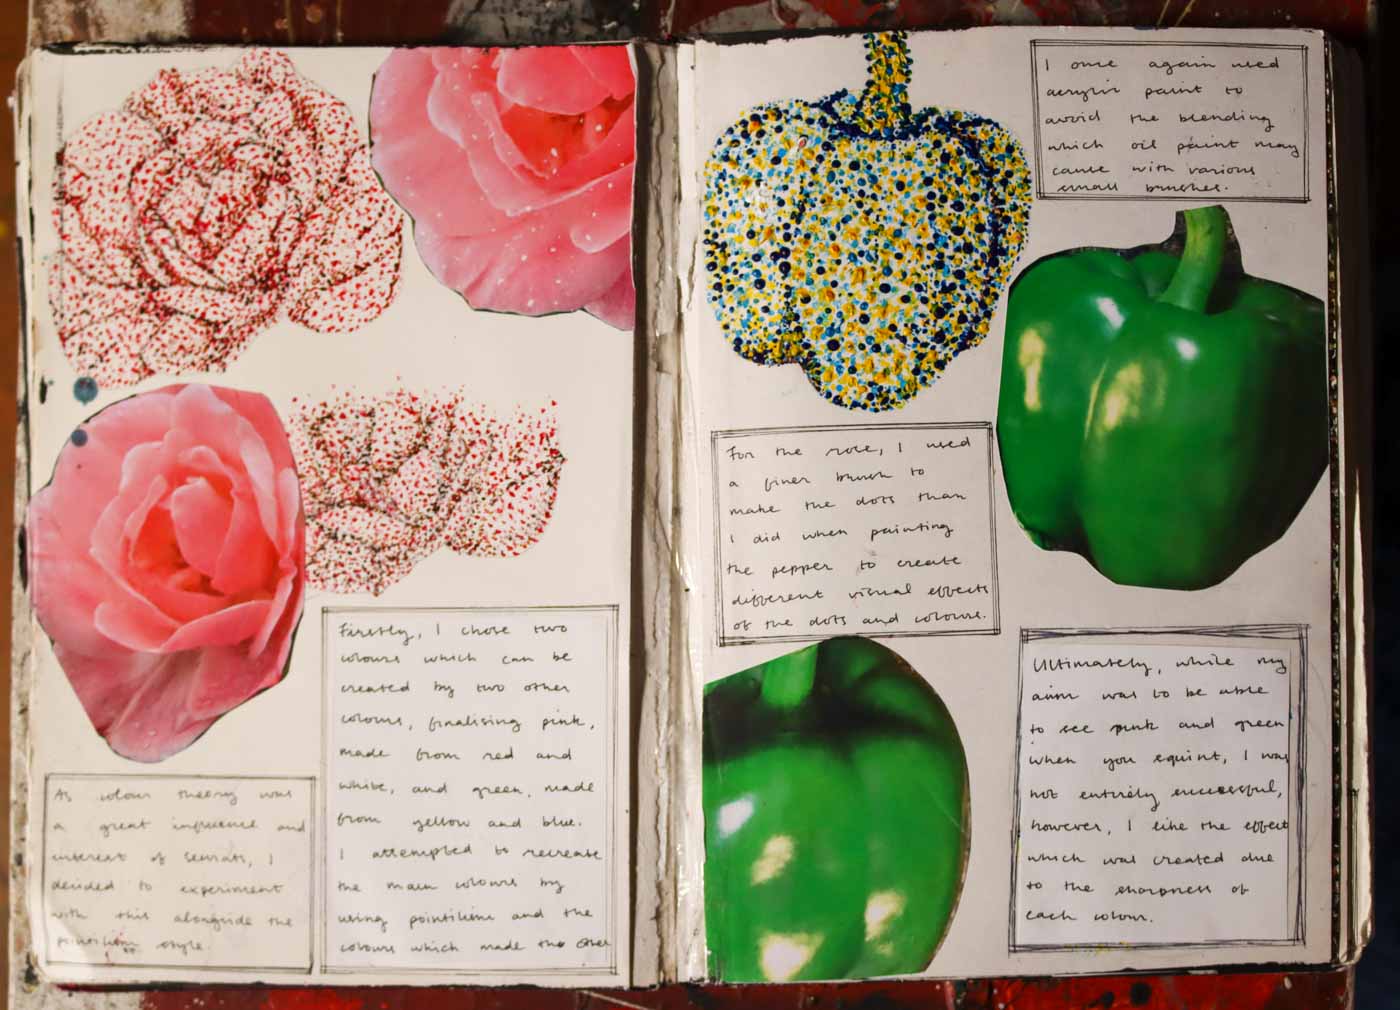 As colour theory was
a great influence and
interest of seurats, I
decided to experiment
with this alongside the
pointilism style.
Firstly, I chose two
colours which can be
created by two other
colours, finalising pink,
made from red and
white, and green, made
from yellow and blue.
I attempted to recreate
the main colours by
using pointilism and the
colours which made the other
I once again used
acrylic paint to
avoid the blending
which oil paint may
cause with various
small brushes.
For the rose, I used
a finer brush to
make the dots than
I did when painting
the pepper to create
different visual effects
of the dots and colours.
Ultimately, while my
aim was to be able
to see pink and green
when you squint, I was
not entirely successful,
however, I like the effect
which was created due
to the sharpness of
each colour.